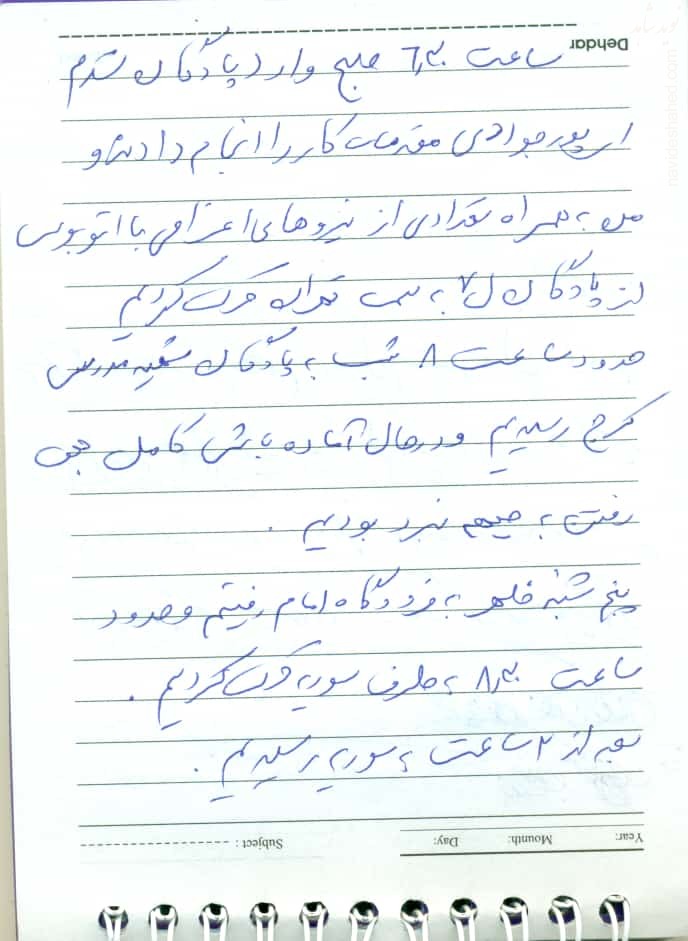 Dehdar
ساعت ۶٫۳۰ صبح وارد پادگان شدم
از پورجوادی مقدمات کار را انجام دادند و
من به همراه تعدادی از نیروهای اعزامی با اتوبوس
از پادگان ل ۷ به سمت تهران حرکت کردیم
حدود ساعت ۸ شب به پادگان شهید مدرس
کرج رسیدیم و در حال آماده باش کامل جهت
رفتن به جبهه نبرد بودیم .
پنج شنبه ظهر به فرودگاه امام رفتیم و حدود
ساعت ۸٫۳۰ به طرف سوریه حرکت کردیم .
بعد از ۲ ساعت به سوریه رسیدیم .
Subject :
Day:
Mounth:
Year:
navideshahed.com